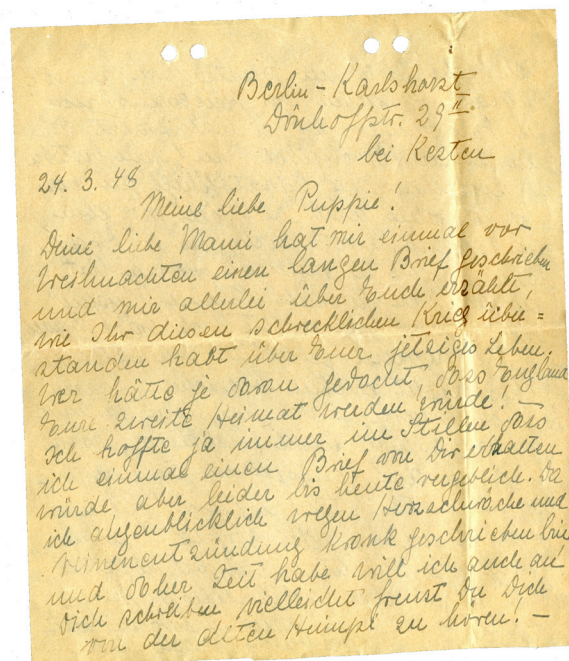 Berlin-Karlshorst
Dönhoffstr. 29 II.
bei Kesten
24. 3. 48
Meine liebe Puppie!
Deine liebe Mami hat mir einmal vor
Weihnachten einen langen Brief geschrieben
und mir allerlei über Euch erzählt,
wie Ihr diesen schrecklichen Krieg über=
standen habt über Euer jetziges Leben.
Wer hätte je daran gedacht, dass England
Eure zweite Heimat werden würde! –
Ich hoffte ja immer im Stillen dass
ich einmal einen Brief von Dir erhalten
würde aber leider bis heute vergeblich. Da
ich augenblicklich wegen Herzschwäche und
Venenentzündung krank geschrieben bin
und daher Zeit habe will ich auch an
Dich schreiben vielleicht freust Du Dich
von der alten zu hören! –